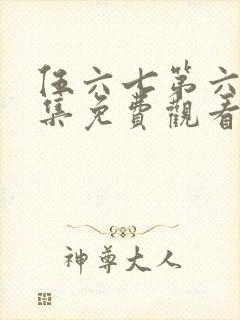 伍六七第六
集免費觀看
神尊大人